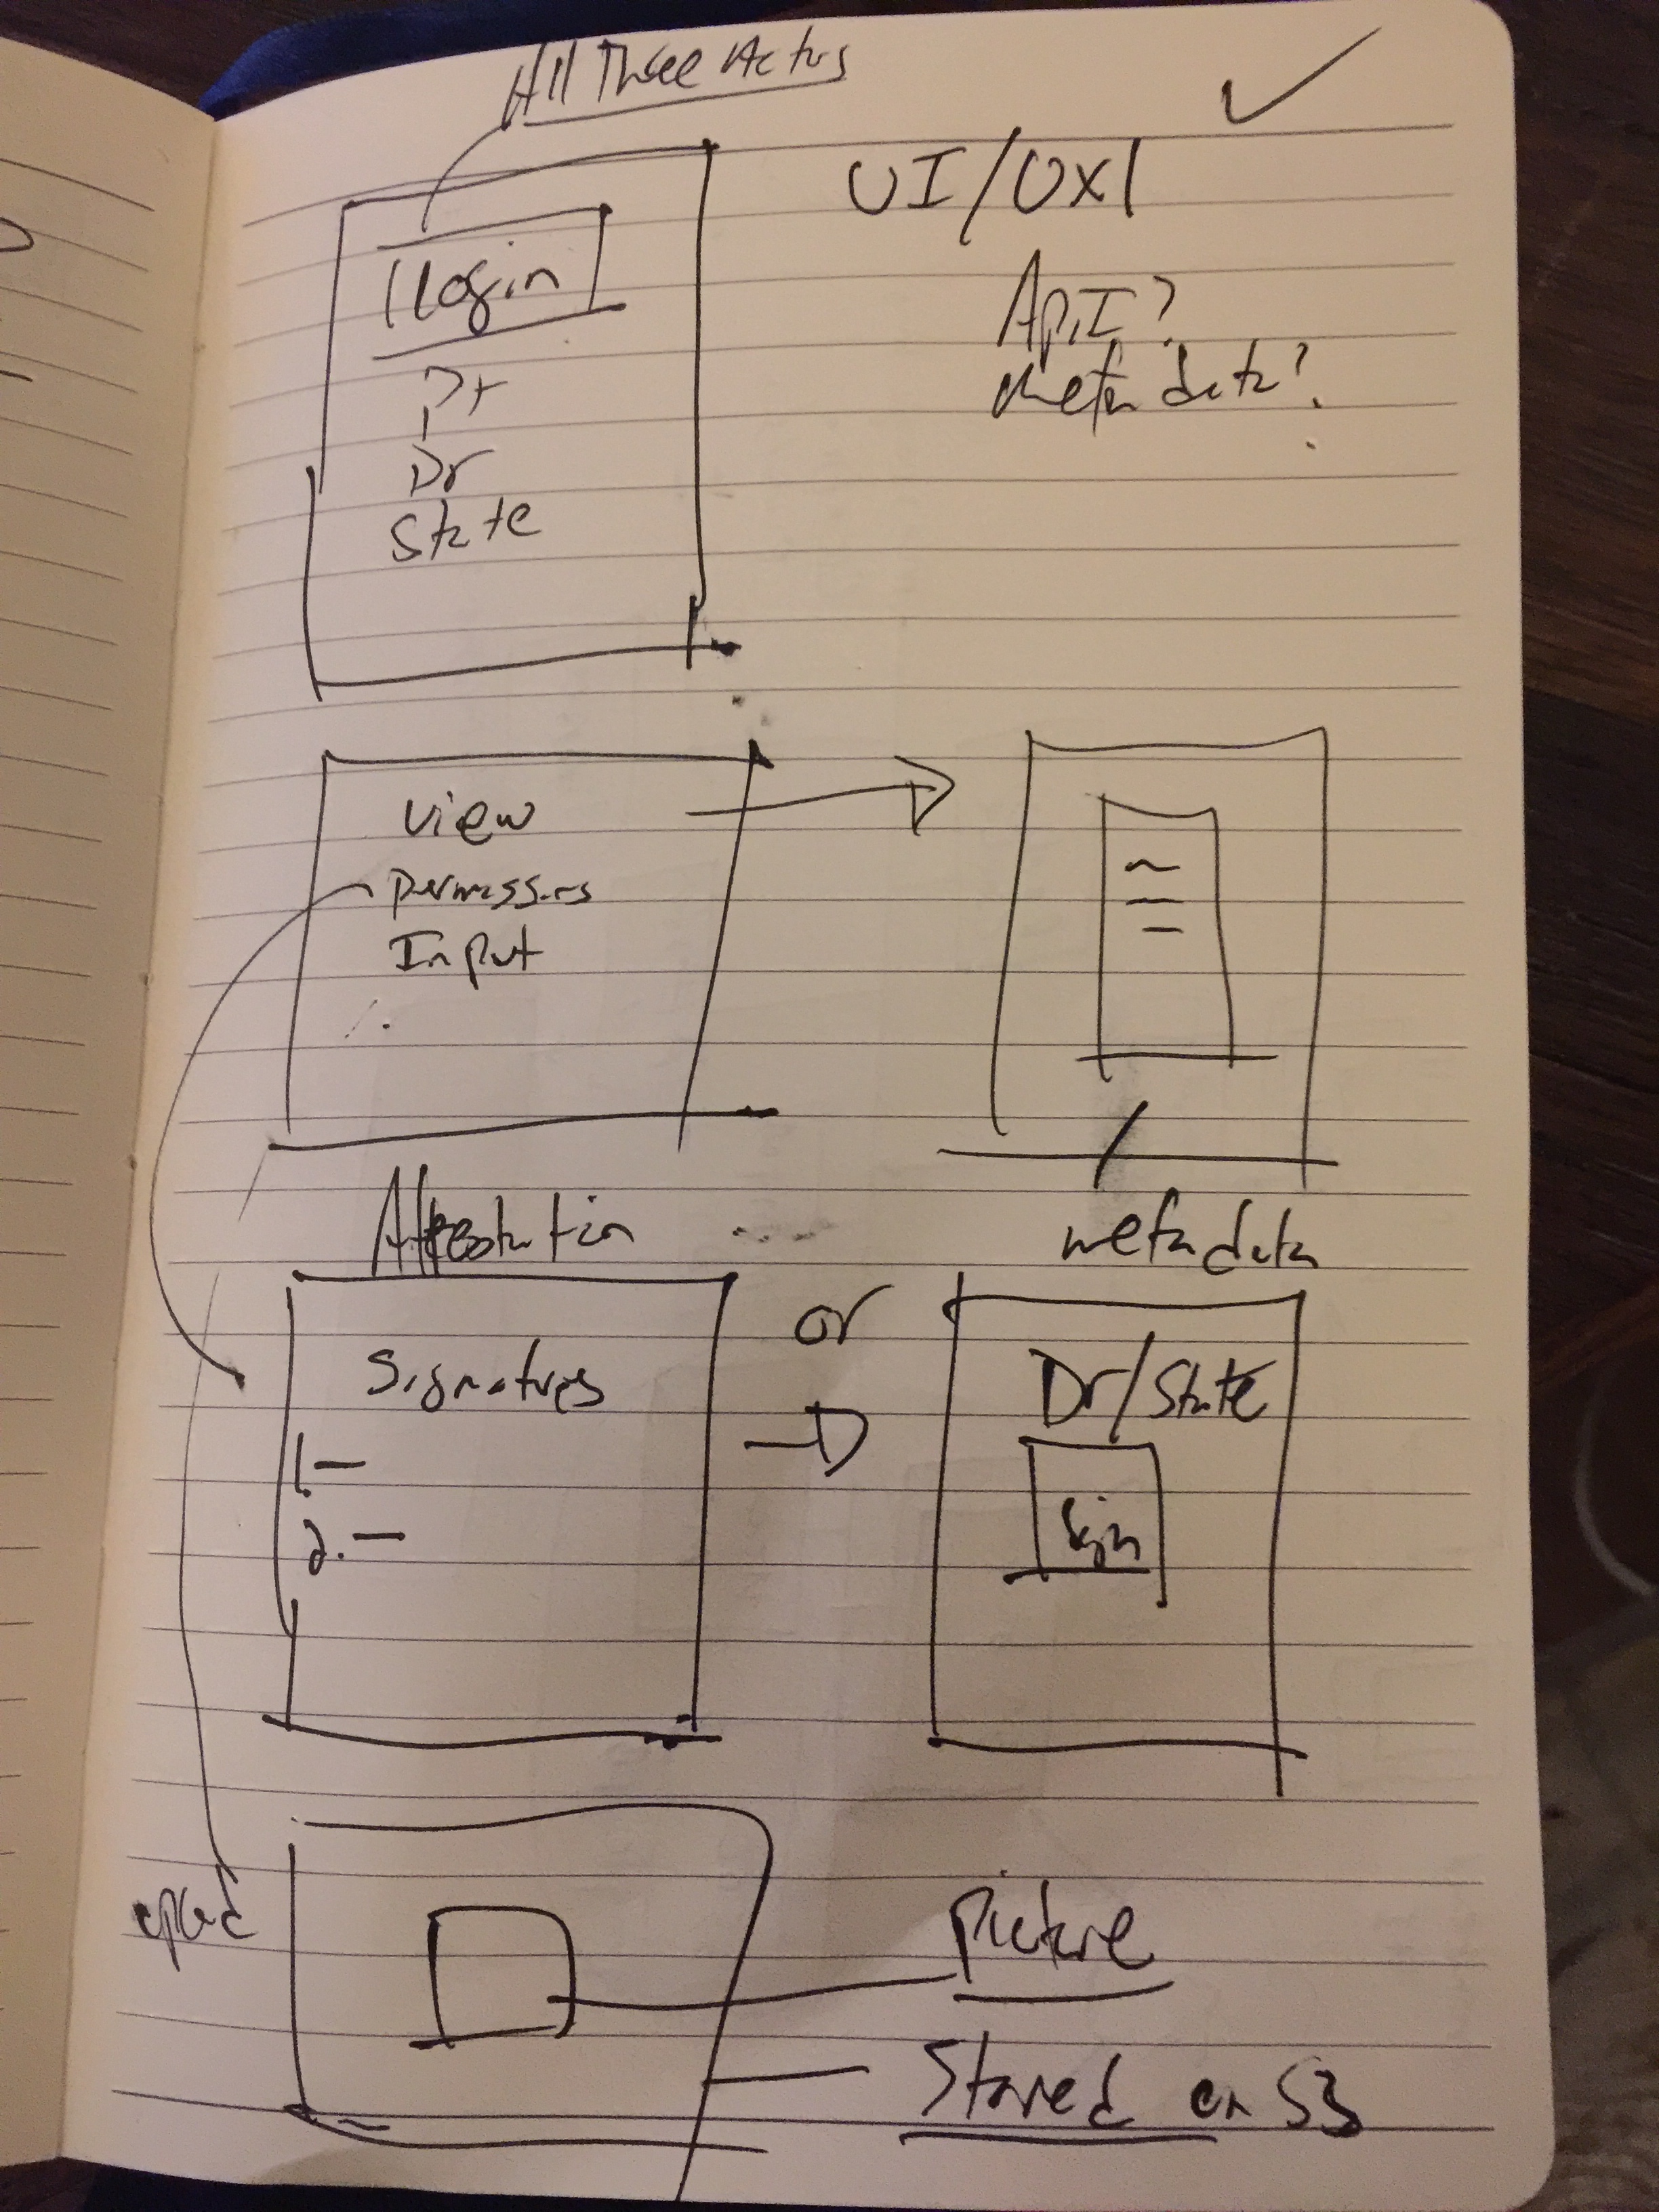 All Three Actors
UI/UX
login
Pt
Dr
State
ApI?
Metadata?
View
Permissions
Input
Attestation
metadata
Signatures
1. —
2. —
or
Dr/State
Sign
upload
Picture
Stored on S3